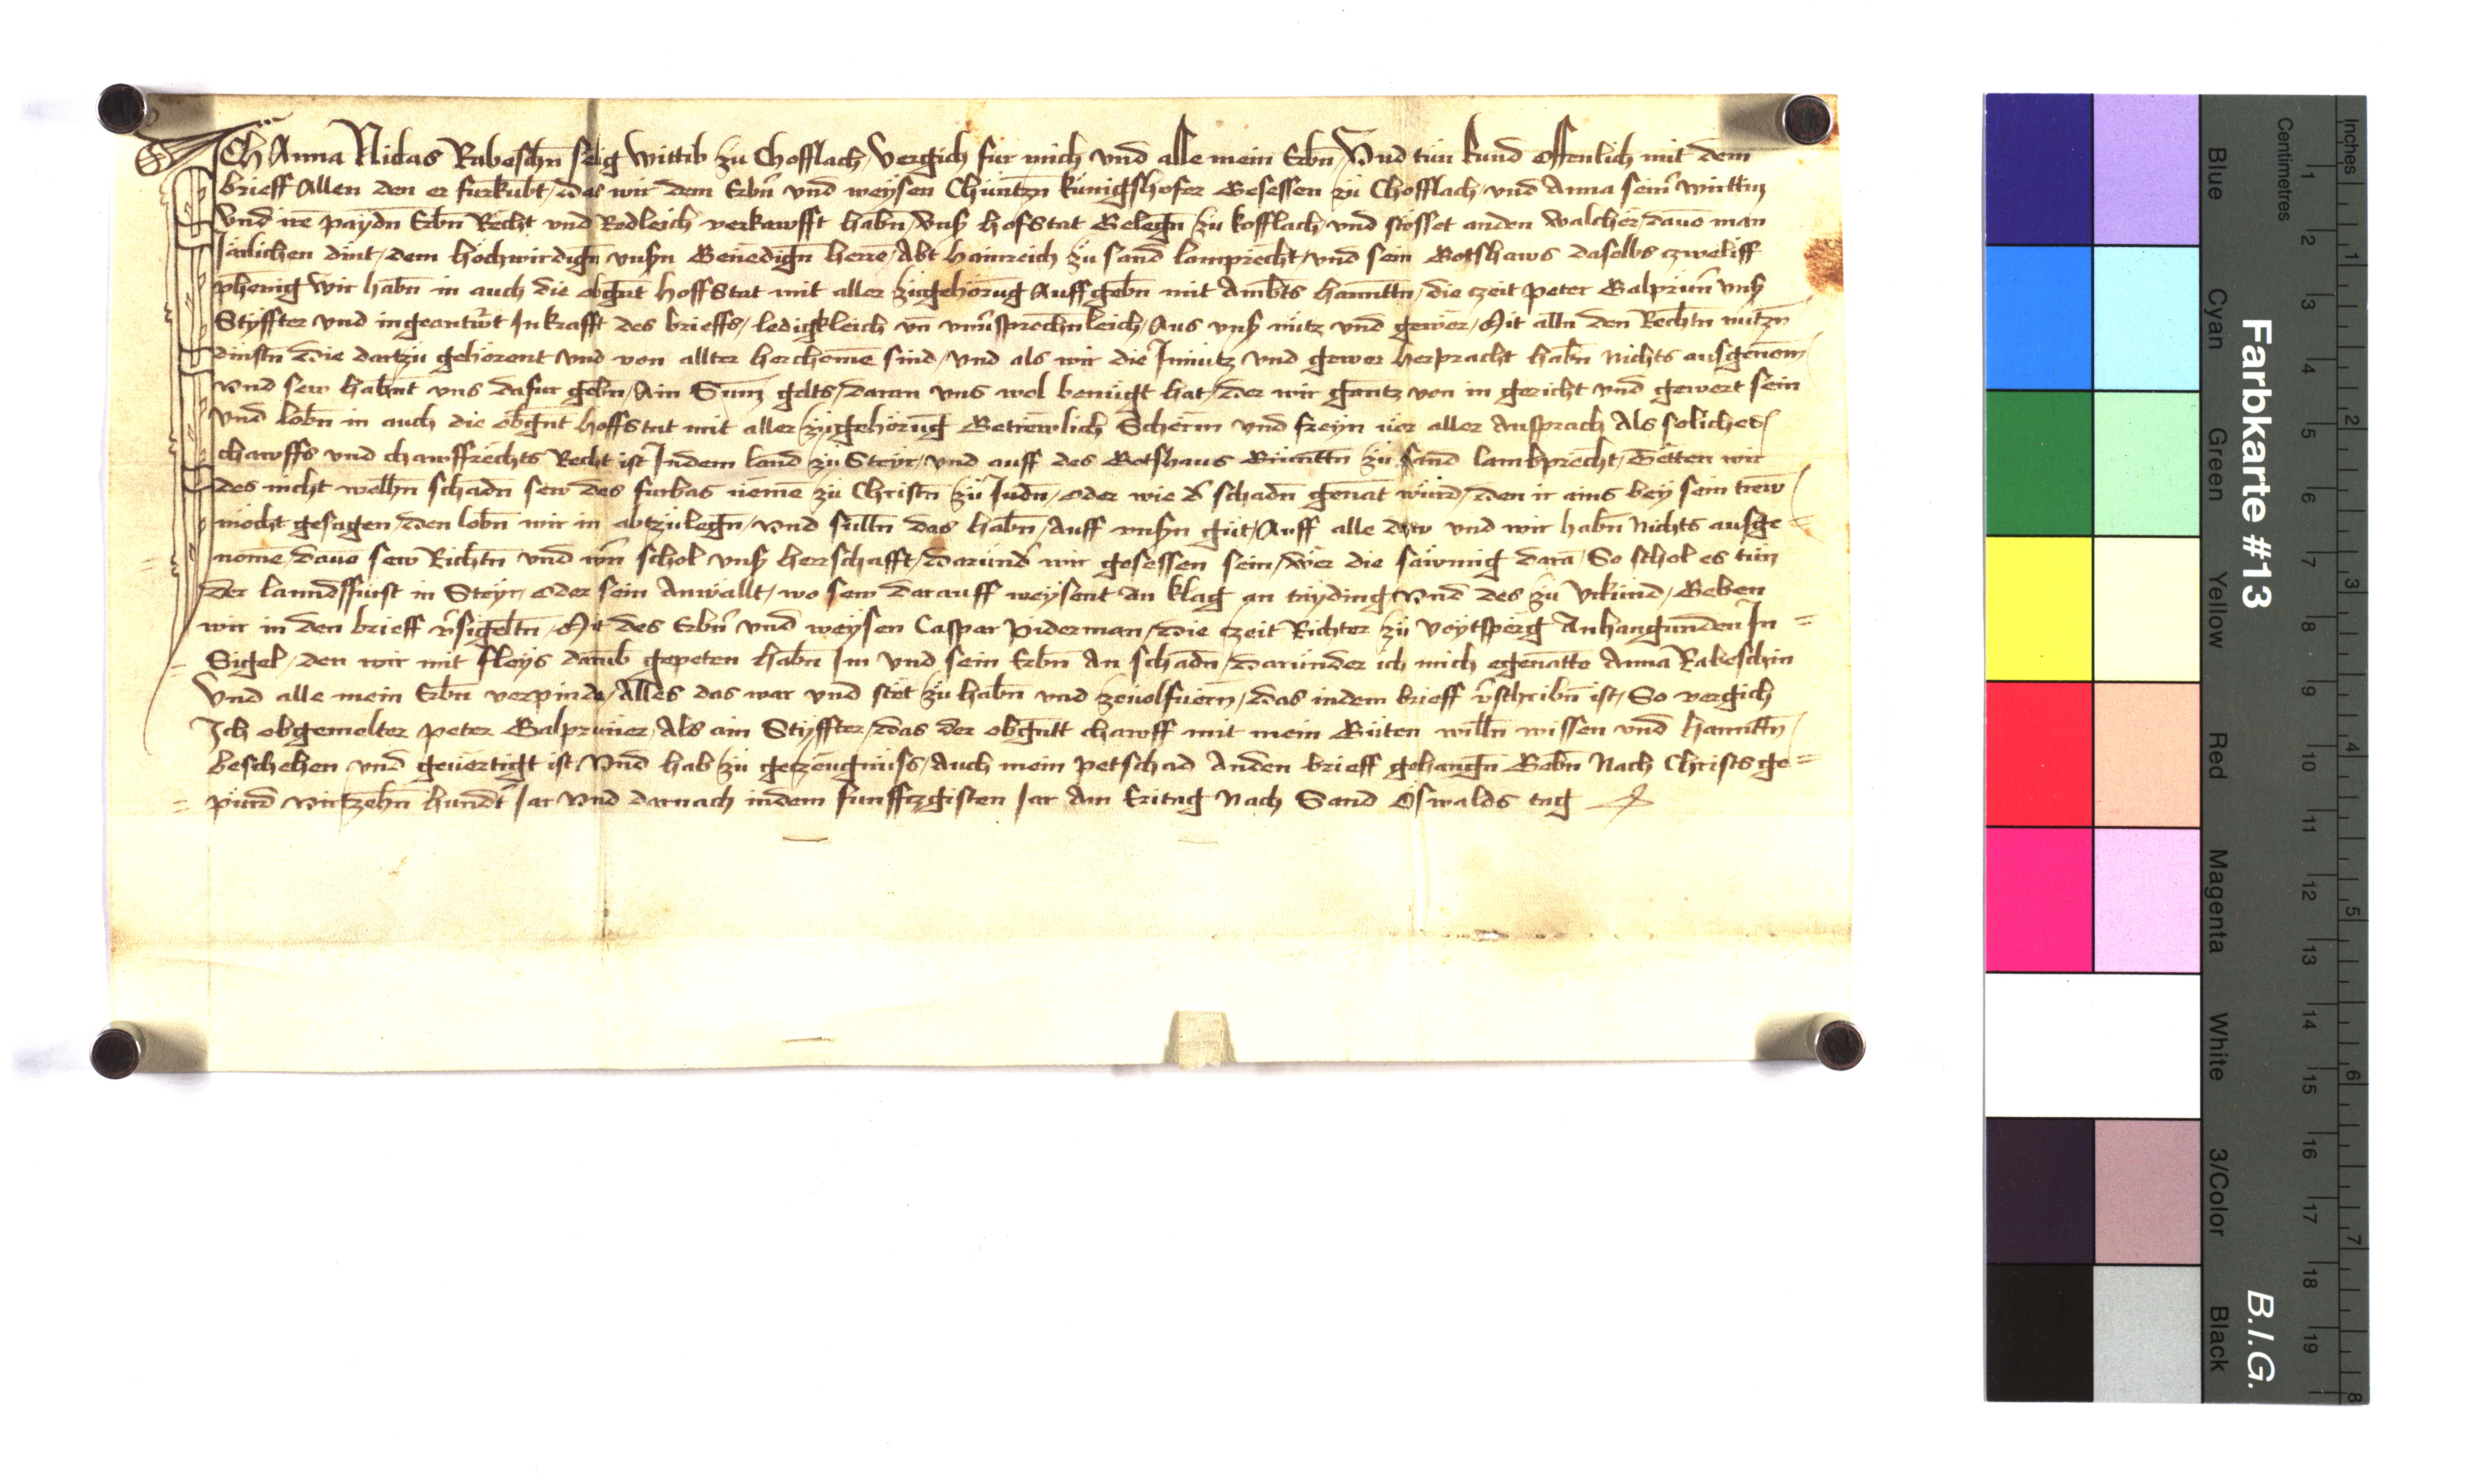 ICh Anna Niclas Rabeschn̄ selig Wittib zu Chofflach / Vergich fur mich vnd alle mein Erbn̄ / Vnd tun kund offenlich mit dem
brieff Allen den er furkubt / das wir dem Erbn̄ vnd weysen Chuntzn̄ kunigshofer Gesessen zu Chofflach / vnd Anna sein̄ wirttin
Vnd ire paydn̄ Erbn̄ Recht vnd Redleich verkawfft habn̄ / vns̄ hofstat Gelegn̄ zu kofflach / vnd stosset anden walcher / dauō man
Järlichen dint / dem hochwirdign̄ vnsn̄ Genedign̄ herrē / Abt hainreich zu sand lamprecht / vnd sein Gotshaws daselbs czweliff
phenig Wir habn̄ in auch die obgn̄t hoffstat mit aller zugehorūg Auffgebn̄ mit Ambts hanntn̄ / die czeit peter Galprun̄ vns̄
Styffter vnd ingeantw̄t In krafft des brieffs / ledigkleich vn̄ vnūsprechn̄leich / Aus vns̄ nutz vnd gewer / Mit alln̄ den Rechtn̄ nutzn̄
dinstn̄ die dartzu gehorent vnd von allter herchomē sind / vnd als wir die Innutz vnd gewer herpracht habn̄ nichts ausgenom̄
vnd sew habn̄t vns dafur gebn̄ / Ain Sum̄ gelts / daran vns wol benugt hat / der wir gantz von in gericht vnd gewert sein
vnd lobn̄ in auch die obgn̄t hoffstat mit aller zugehorūg Getrewlich Scherm̄ vnd freyn uor aller Ansprach Als soliches
chawffs vnd chawffrechts Recht ist Indem land zu Steyr / vnd auff des Gotshaus Gruntn̄ zu sand lambprecht / Tetten wir
des nicht welhn̄ schadn̄ sew des furbas nemē zu Christn̄ zu Judn̄ / oder wie d̄ schadn̄ genāt wurd / den ir ains bey sein trew
mocht gesagen / den lobn̄ wir in abtzulegn̄ / vnd sulln̄ das habn̄ / auff vnsn̄ gut / Auff alle dew vnd wir habn̄ nichts ausge=
nome / dauō sew Richtn̄ vnd wn̄ schol vns̄ herrschafft / darund̄ wir gesessen sein / wer die sawmig darā / So schol es tun
der lanndffurst in Steyr / oder sein Anwallt / wo sew darauff weysent an klag an tayding vnd des zu vrkund / Geben
wir in den brieff v̄sigeltn̄ / Mit des Erbn̄ vnd weysen Caspar Piderman / die czeit Richter zu Voytsperg Anhangunden In=
Sigel / den wir mit fleys darūb gepeten habn̄ Im vnd sein Erbn̄ An schadn̄ / darunder ich mich egenatte Anna Rabeschin
Vnd alle mein Erbn̄ verpinde / Alles das war vnd stet zu habn̄ vnd zeuolfuern̄ / das indem brieff v̄schribn̄ ist / So vergich
Ich obgemelter peter Galpruner / Als ain Styffter / das der obgn̄tt chawff mit mein Guten willn̄ wissen vnd hanntn̄
beschehen vnd geuertigt ist Vnd hab zu getzeugnuss / auch mein petschad Anden brieff gehangn̄ Gebn̄ Nach Christs ge=
purd virtzehn̄ hundt̄ Jar vnd darnach indem funffczgisten Jar Am Eritag Nach Sand Oswalds tag
Farbkarte #13
B.I.G.
Centimetres
Inches
Blue
Cyan
Green
Yellow
Red
Magenta
White
3/Color
Black
1 2 3 4 5 6 7 8 9 10 11 12 13 14 15 16 17 18 19
1 2 3 4 5 6 7 8